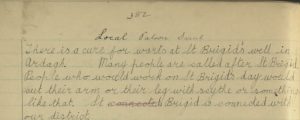 382
Local Patron Saint
There is a cure for warts at St Brigid's well in
Ardagh Many people are called after St Brigid
People who would work on St Brigid's day would
cut their arm or their leg with scythe or something
like that. St connected Brigid is connected with
our district.